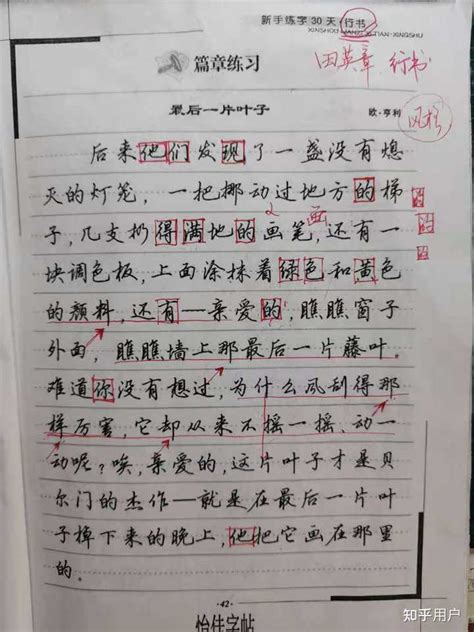 新手练字30天·行书
XINSHOU LIANZI 30 TIAN·XINGSHU
田英章 行书
风格
篇章练习
最后一片叶子
欧·亨利
后来他们发现了一盏没有熄
灭的灯笼，一把挪动过地方的梯
子，几支扔得满地的画笔，还有一
画
块调色板，上面涂抹着绿色和黄色
的颜料，还有——亲爱的，瞧瞧窗子
外面，瞧瞧墙上那最后一片藤叶。
难道你没有想过，为什么风刮得那
样厉害，它却从来不摇一摇、动一
动呢？唉，亲爱的，这片叶子才是贝
尔门的杰作——就是在最后一片叶
子掉下来的晚上，他把它画在那里
的。
·42·
怡佳字帖
知乎用户